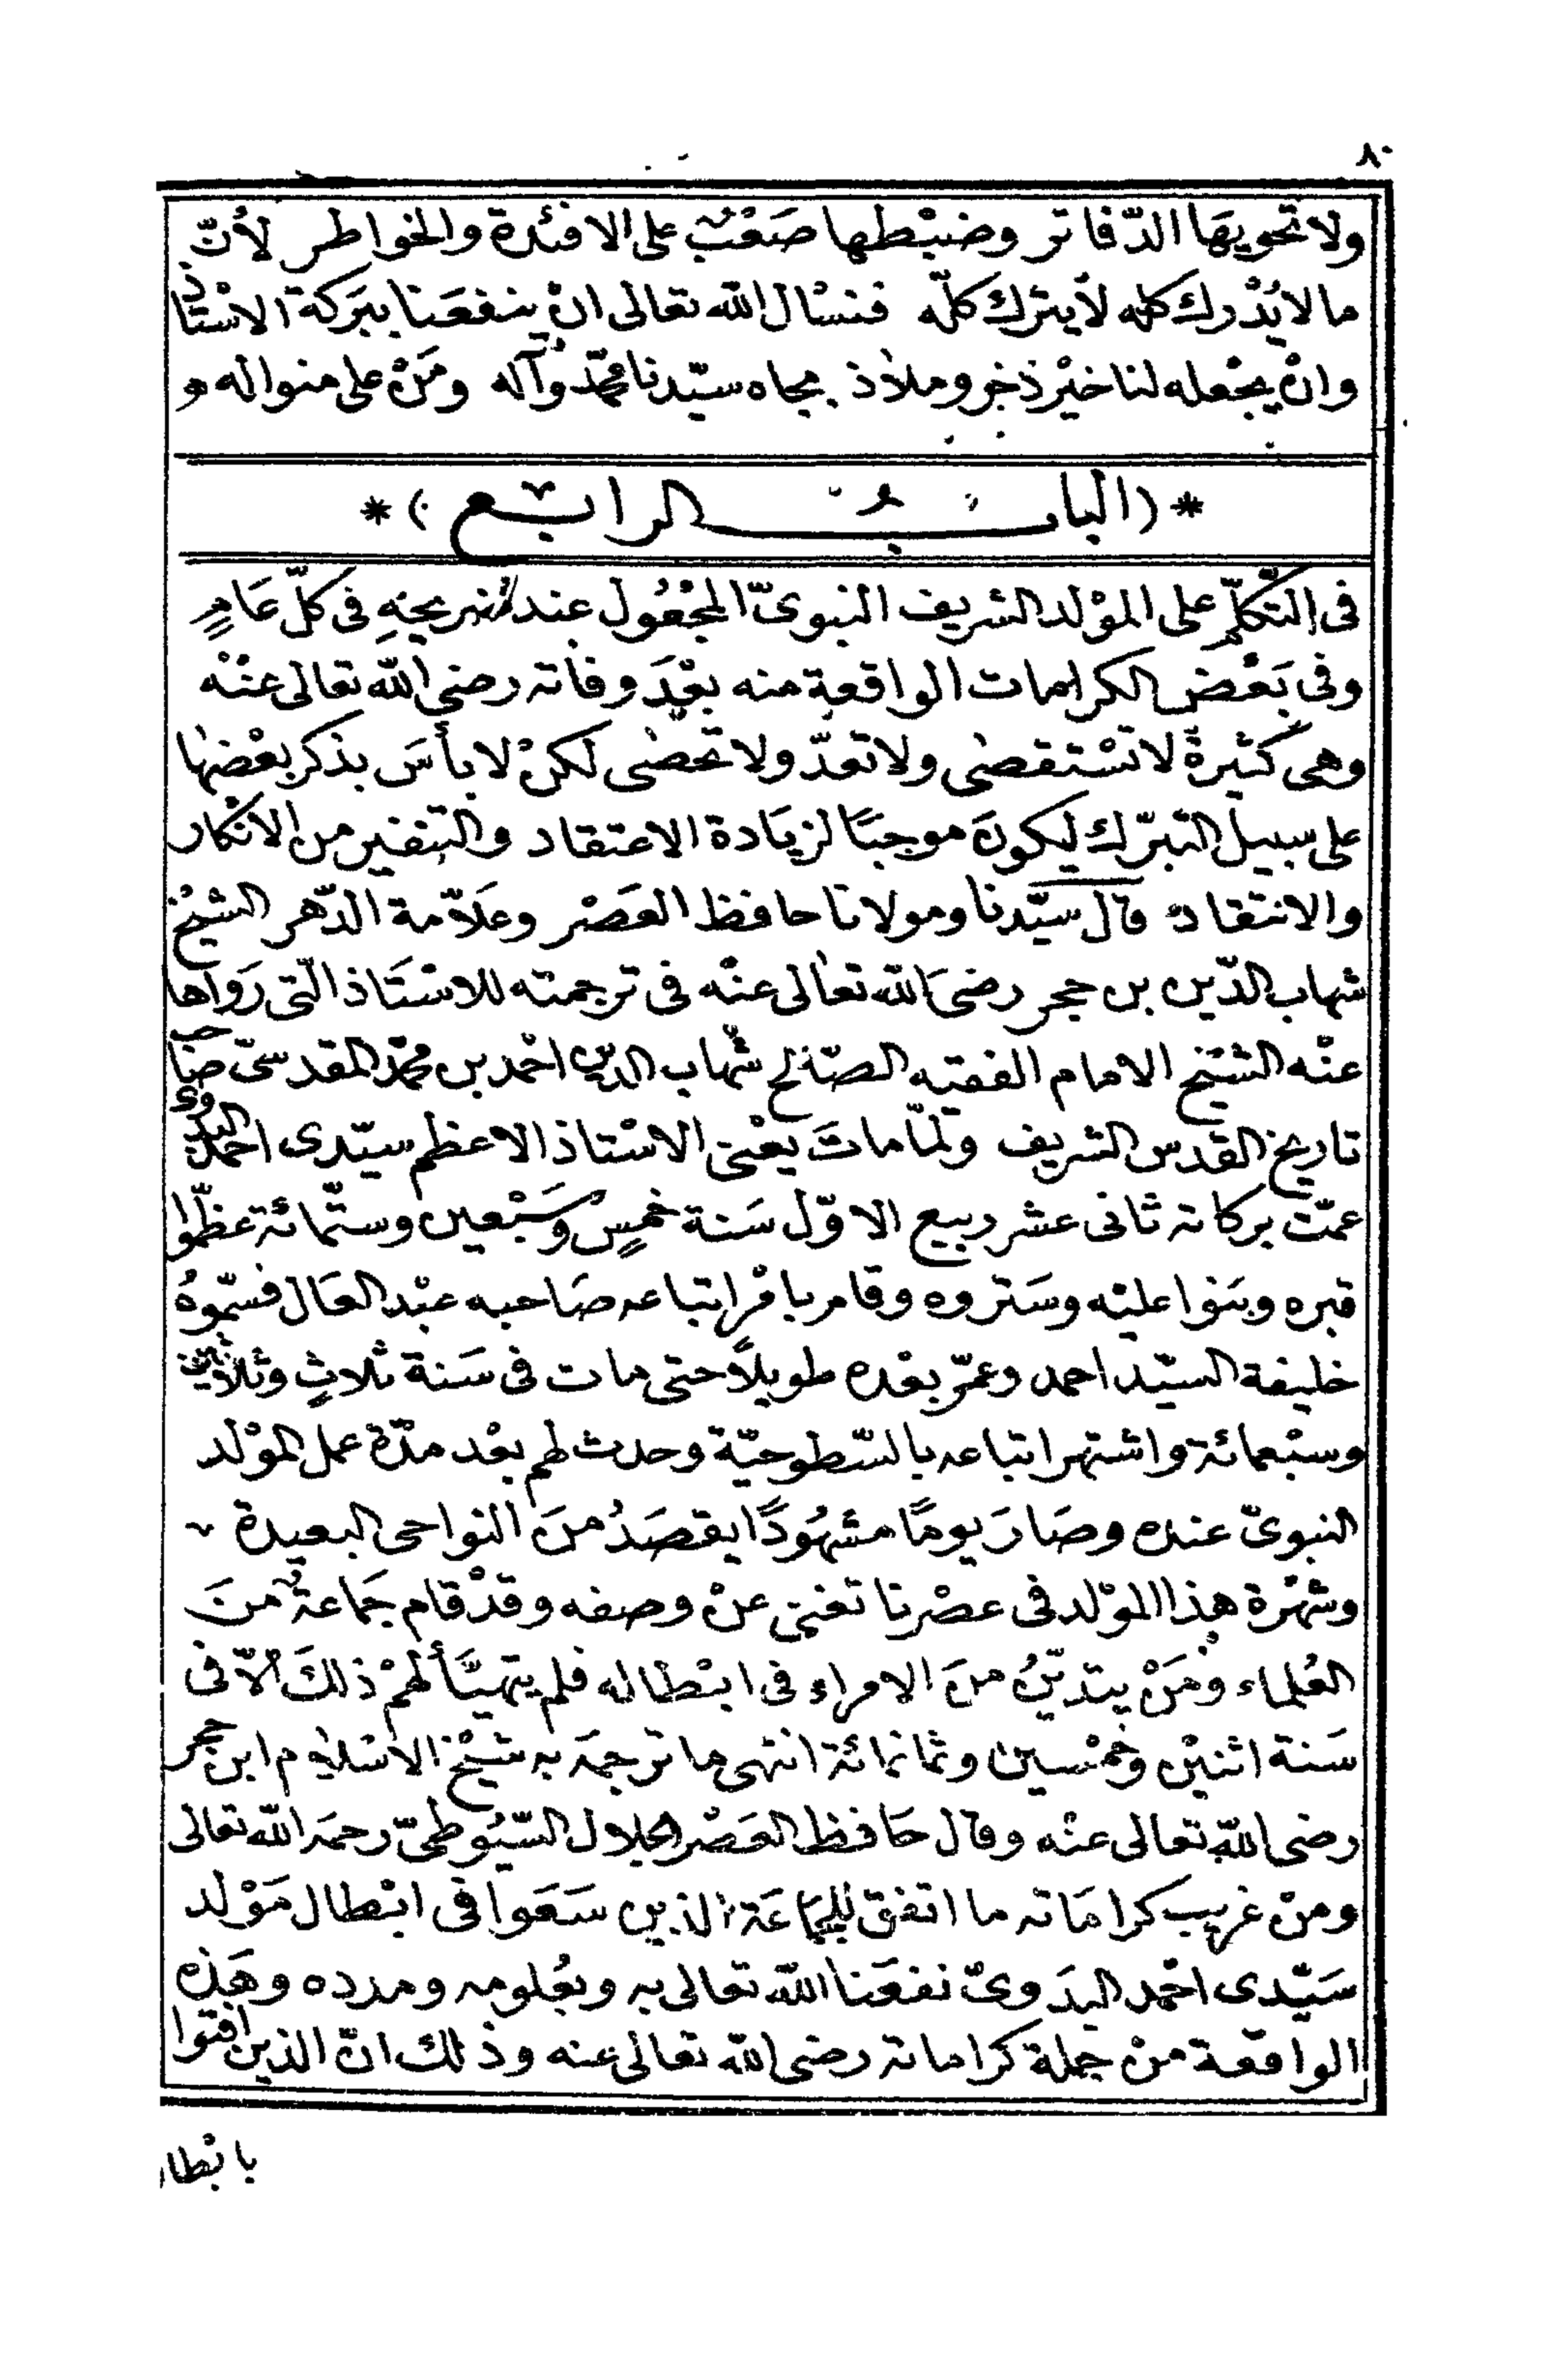 ٨٠
ولا تحويهَا الدّفاتر وضبْطها صَعْبٌ على الافئدة والخواطر لأنّ
ما لا يُدْرك كله لا يترك كلّه فنسْال الله تعالى انْ ينفعَنا ببَركة الاسْتاذ
وانْ يجْعله لنا خيْر ذخر وملاذ بجاه سيّدنا محمّد وآله ومَنْ على منواله
*(البابُ الرابع)*
فى التّكلّم على المؤلد الشريف النبوىّ المجْعُول عند ضريحهِ فى كلّ عَامٍ
وفى بَعْض الكرامات الواقعة منه بعْدَ وفاته رضى الله تعالى عنْه
وهى كثيرةٌ لا تسْتقصٰى ولا تعدّ ولا تحصٰى لكنْ لا بأسَ بذكر بعْضهٰا
على سبيل التبرّك ليكونَ موجبًا لزيَادة الاعتقاد والتنفير من الانكار
والانتقاد قال سيّدنا ومولانا حافظ العَصْر وعَلاّمة الدّهر الشيْخ
شهاب الدّين بن حجر رضىَ الله تعالى عنْه فى ترجمته للاسْتَاذ الّتى رَوَاها
عنْه الشيْخ الامام الفقيه الصّالح شهاب الدين احْمد بن محمّد المقدسىّ صَاحب
تاريخ القدس الشريف ولمّا ماتَ يعْنى الاسْتاذ الاعظم سيّدى احمد البدوى
عمّت بركاته ثانى عشر ربيع الاوّل سَنة خمسٍ وسَبْعين وستّمائة عظّموا
قبره وبنوا عليْه وسَتروه وقام بامْر اتباعه صَاحبه عبْد العَال فسمّوهُ
خليفة السيّد احمد وعمّر بعْده طويلاً حتى مات فى سَنة ثلاثٍ وثلاثين
وسبْعمائة واشتهر اتباعه بالسّطوحيّة وحدث لهم بعْد مدّة عمل المؤلد
النبوىّ عنده وصَارَ يومًا مشهُودًا يقصَدُ منَ النواحى البعيدة
وشهْرة هذا المؤلد فى عصْرنا تغنى عنْ وصفه وقدْ قام جَماعةٌ منَ
العُلماء ومَنْ يتديّنُ منَ الامراء فى ابْطاله فلم يتهيّأ لهمْ ذلكَ الاّ فى
سَنة اثنيْن وخمْسين وثمانمائة انتهى ما ترجمَه به شيْخ الاسْلام ابن حجر
رضى الله تعالى عنْه وقال حَافظ العَصْر الجلال السّيُوطىّ رحمَه الله تعالى
ومنْ غريب كرامَاته ما اتفق للجمَاعَة الذين سَعَوا فى ابْطال مَوْلد
سَيّدى احْمد البدَوىّ نفعَنا الله تعالى به وبعُلومه ومدده وهَذه
الواقعَة منْ جملة كراماته رضى الله تعالى عنه وذلك انّ الذين افتوا
بابْطا